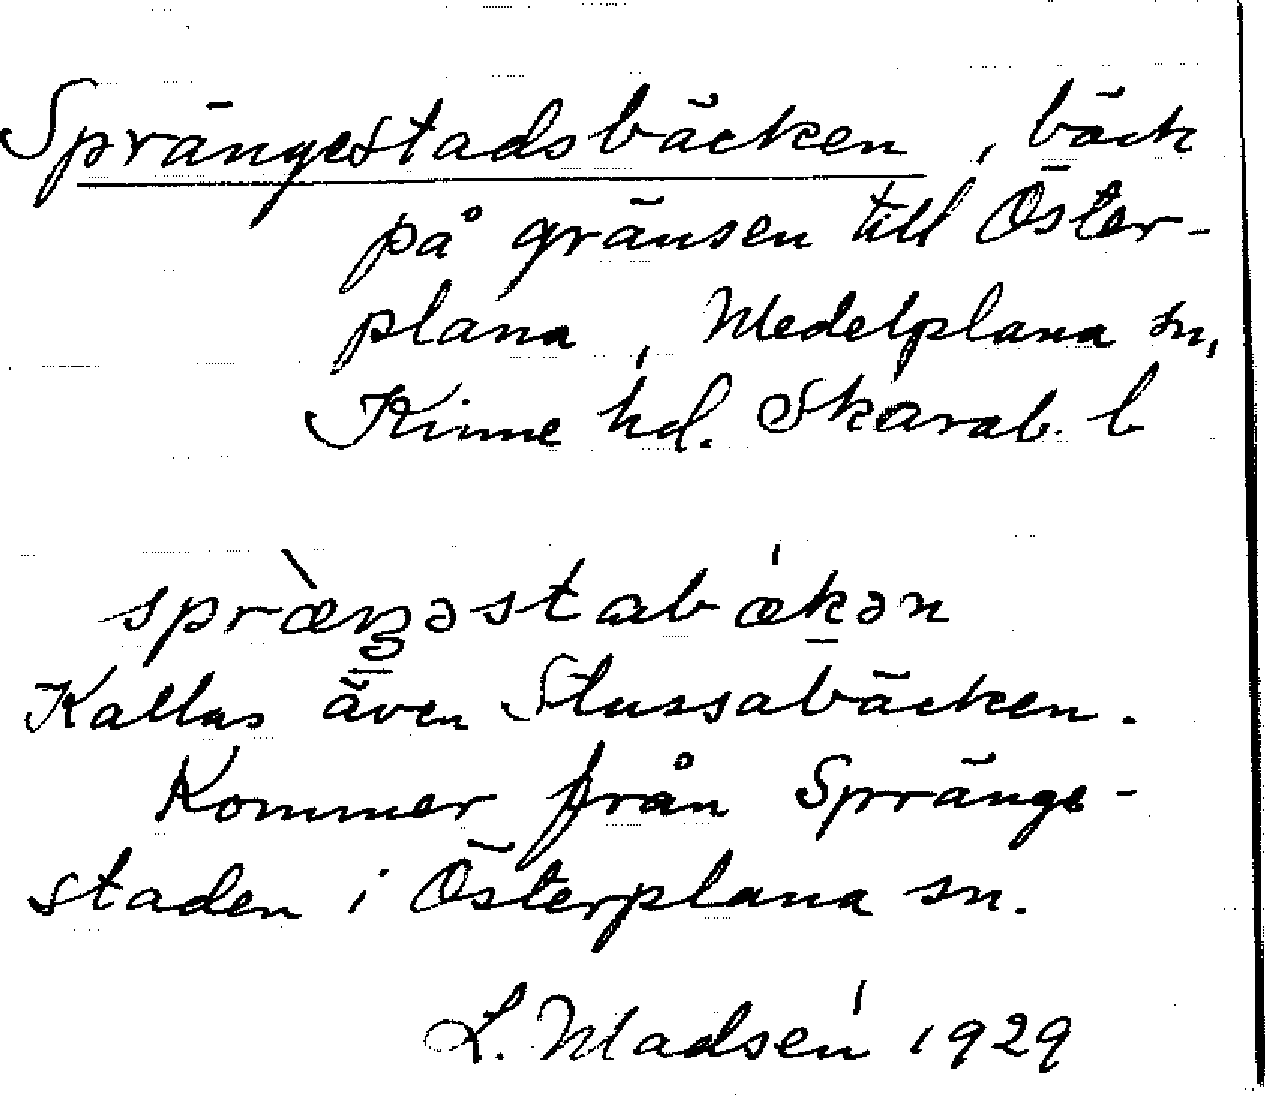 Sprängestadsbäcken, bäck
på gränsen till Öster-
plana, Medelplana sn,
Kinne hd. Skarab. l
spræ̀ŋəstabækən
Kallas även Slussabäcken.
Kommer från Spränge-
staden i Österplana sn.
L. Madsén 1929